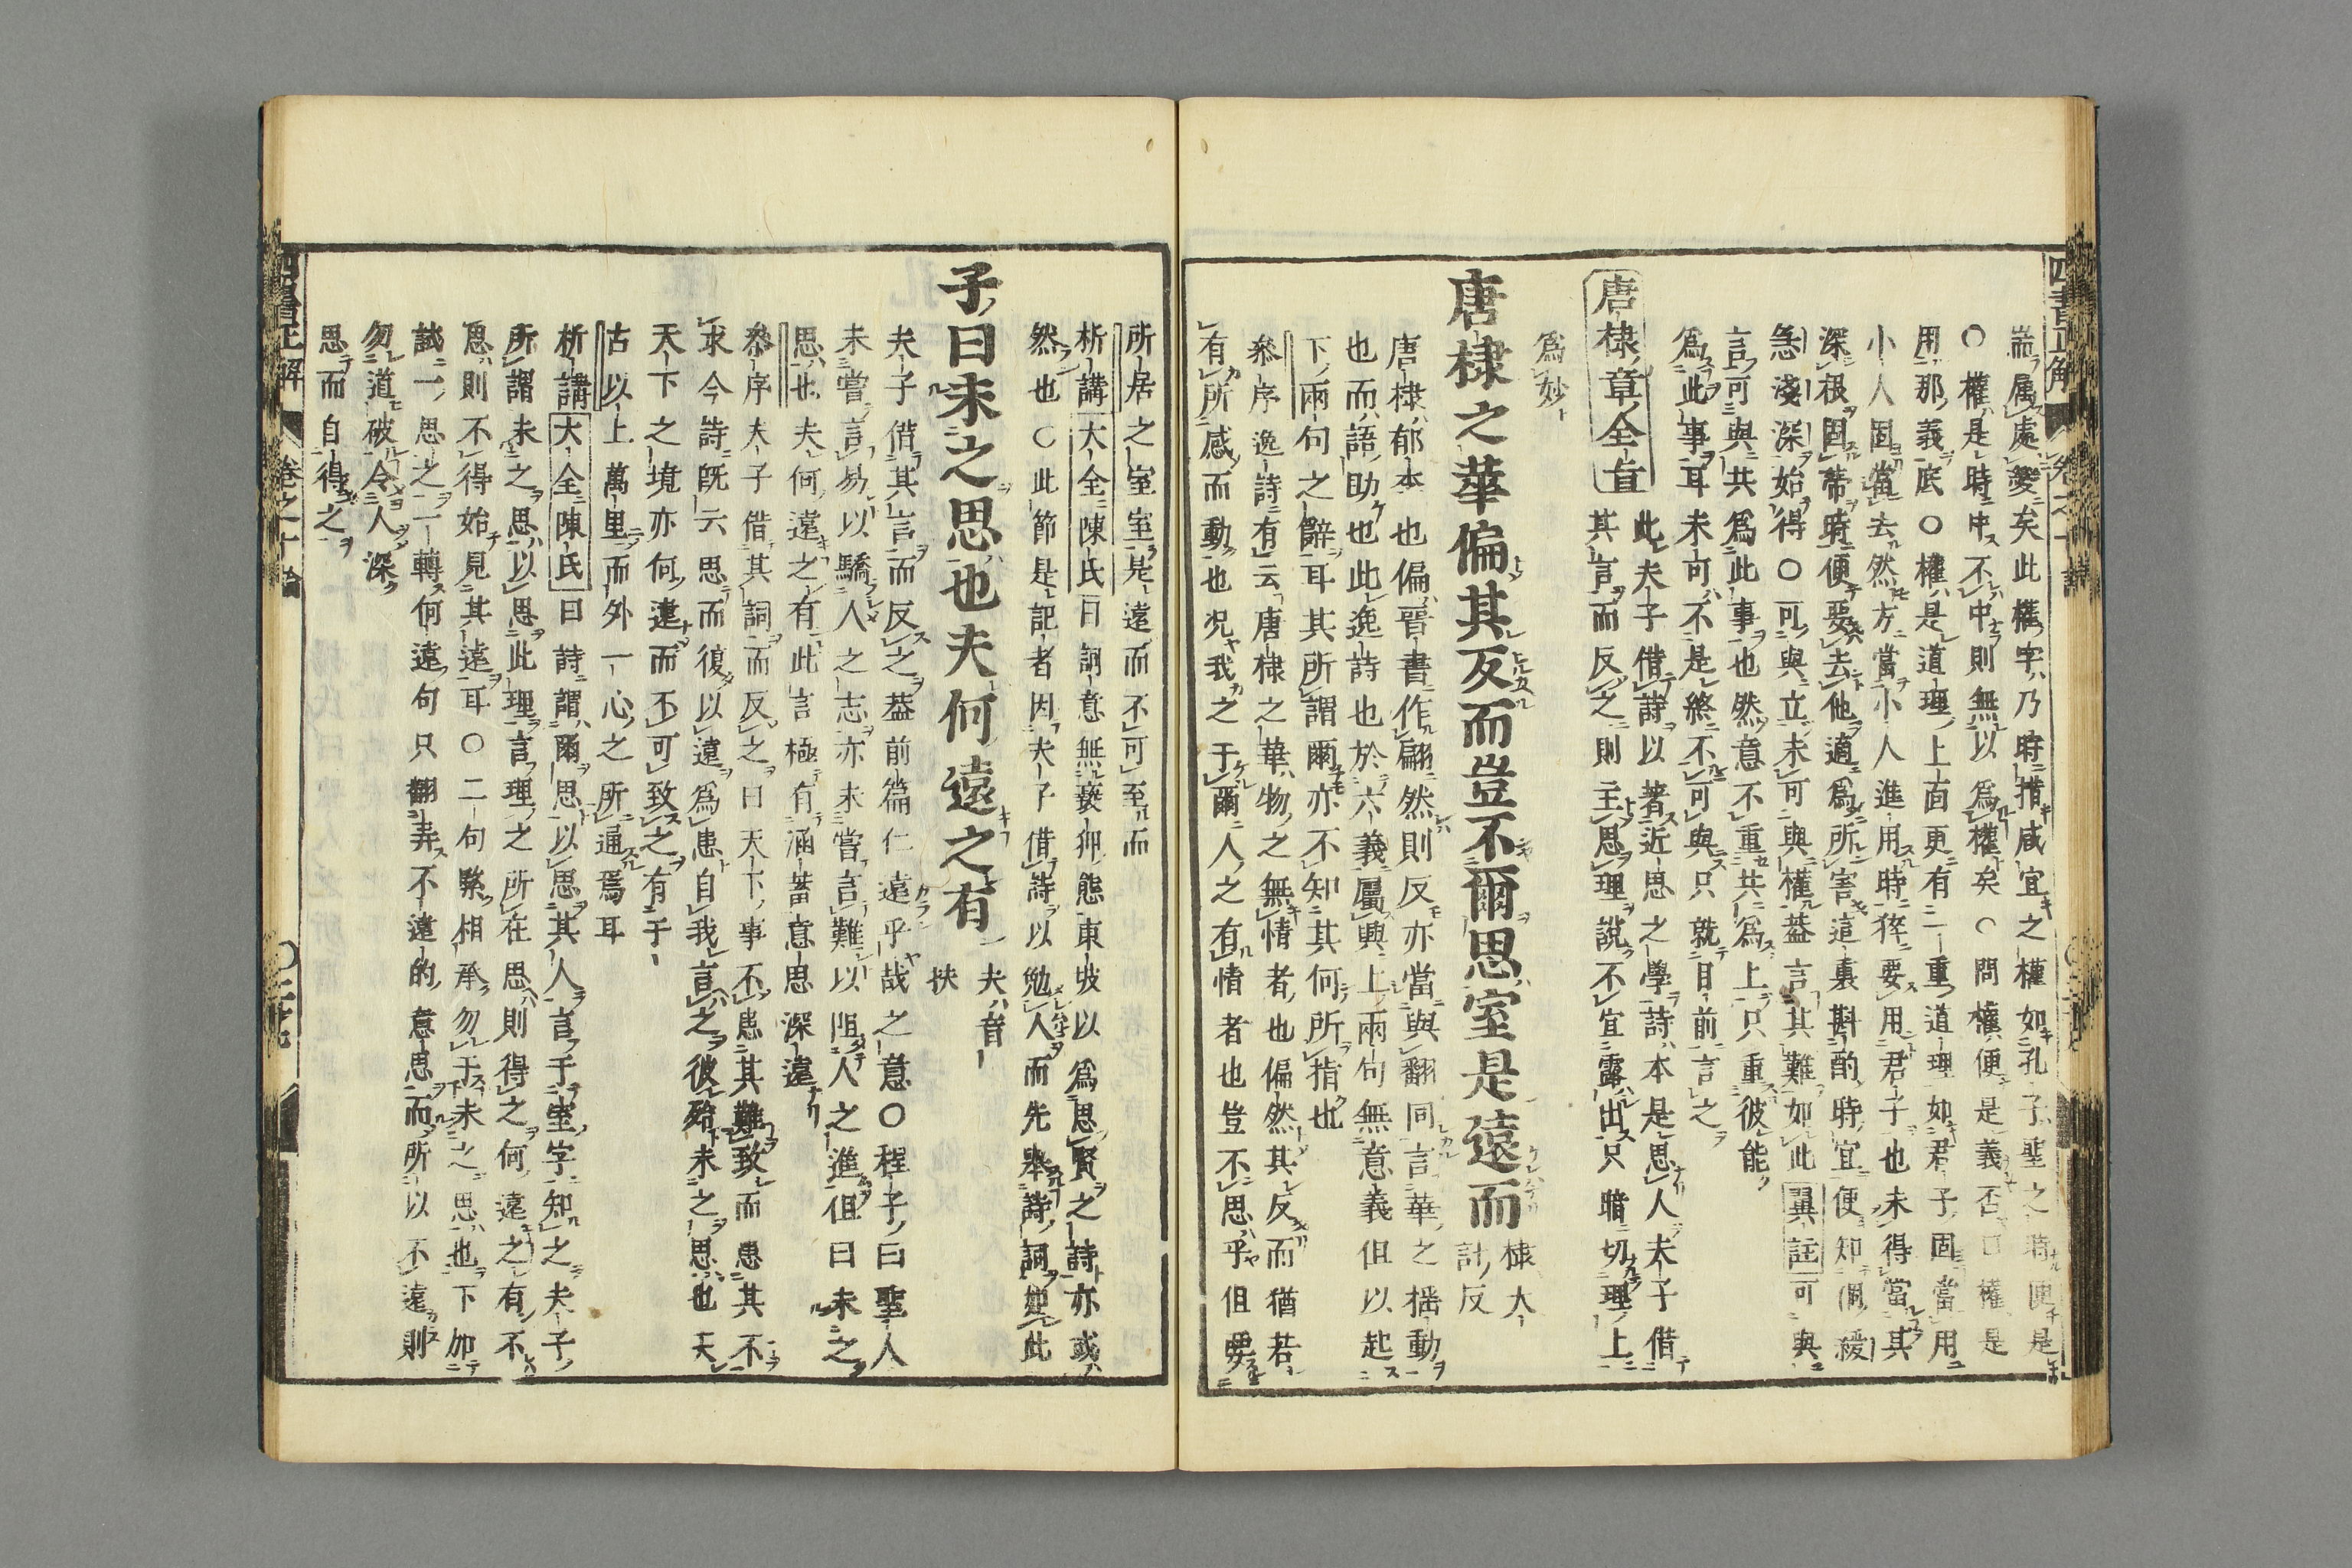 耑属處變矣此權字乃時措咸宜之權如孔子聖之時便是
○權是時中不中則無以為權矣○問權便是義否曰權是
用那義底○權是道理上面更有一重道理如君子固當用
小人固當去然方當小人進用時猝要用君子也未得當其
深根固帶時便要去他適為所害這裏斟酌時宜便知個緩
急淺深始得○可與立未可與權葢言其難如此翼註可與
言可與共為此事也然意不重共為上只重彼能
為此事耳未可不是終不可與只就目前言之
為妙
唐棣章全旨
此夫子借詩以著近思之學詩本是思人夫子借
其言而反之則主思理說不宜露出只暗切理上
唐棣之華偏其反而豈不爾思室是遠而
棣大
計反
唐棣郁本也偏晋書作翩然則反亦當與翻同言華之搖動
也而語助也此逸詩也於六義屬興上兩句無意義但以起
下兩句之辭耳其所謂爾亦不知其何所指也
參序逸詩有云唐棣之華物之無情者也偏然其反而猶若
有所感而動也况我之于爾人之有情者也豈不思乎但要
所居之室室是遠而不可至而
析講大全陳氏曰詞意無褻狎態東坡以為思賢之詩亦或
然也○此節是記者因夫子借詩以勉人而先舉詩詞如此
子曰未之思也夫何遠之有
夫音
扶
夫子借其言而反之葢前篇仁遠乎哉之意○程子曰聖人
未嘗言易以驕人之志亦未嘗言難以阻人之進但曰未之
思也夫何遠之有此言極有涵蓄意思深遠
參序夫子借其詞而反之曰天下事不患其難致而患其不
求今詩既云思而復以遠為患自我言之彼殆未之思也天
天下之境亦何遠而不可致之有于
古以上萬里而外一心之所通焉耳
析講大全陳氏曰詩謂爾思以思其人言于室字知之夫子
所謂未之思以思此理言理之所在思則得之何遠之有不
思則不得始見其遠耳○二句緊相承勿于未之思也下加
試一思之一轉何遠句只翻弄不遠的意思而所以不遠則
勿道破令人深
思而自得之
四書正解
卷之十論